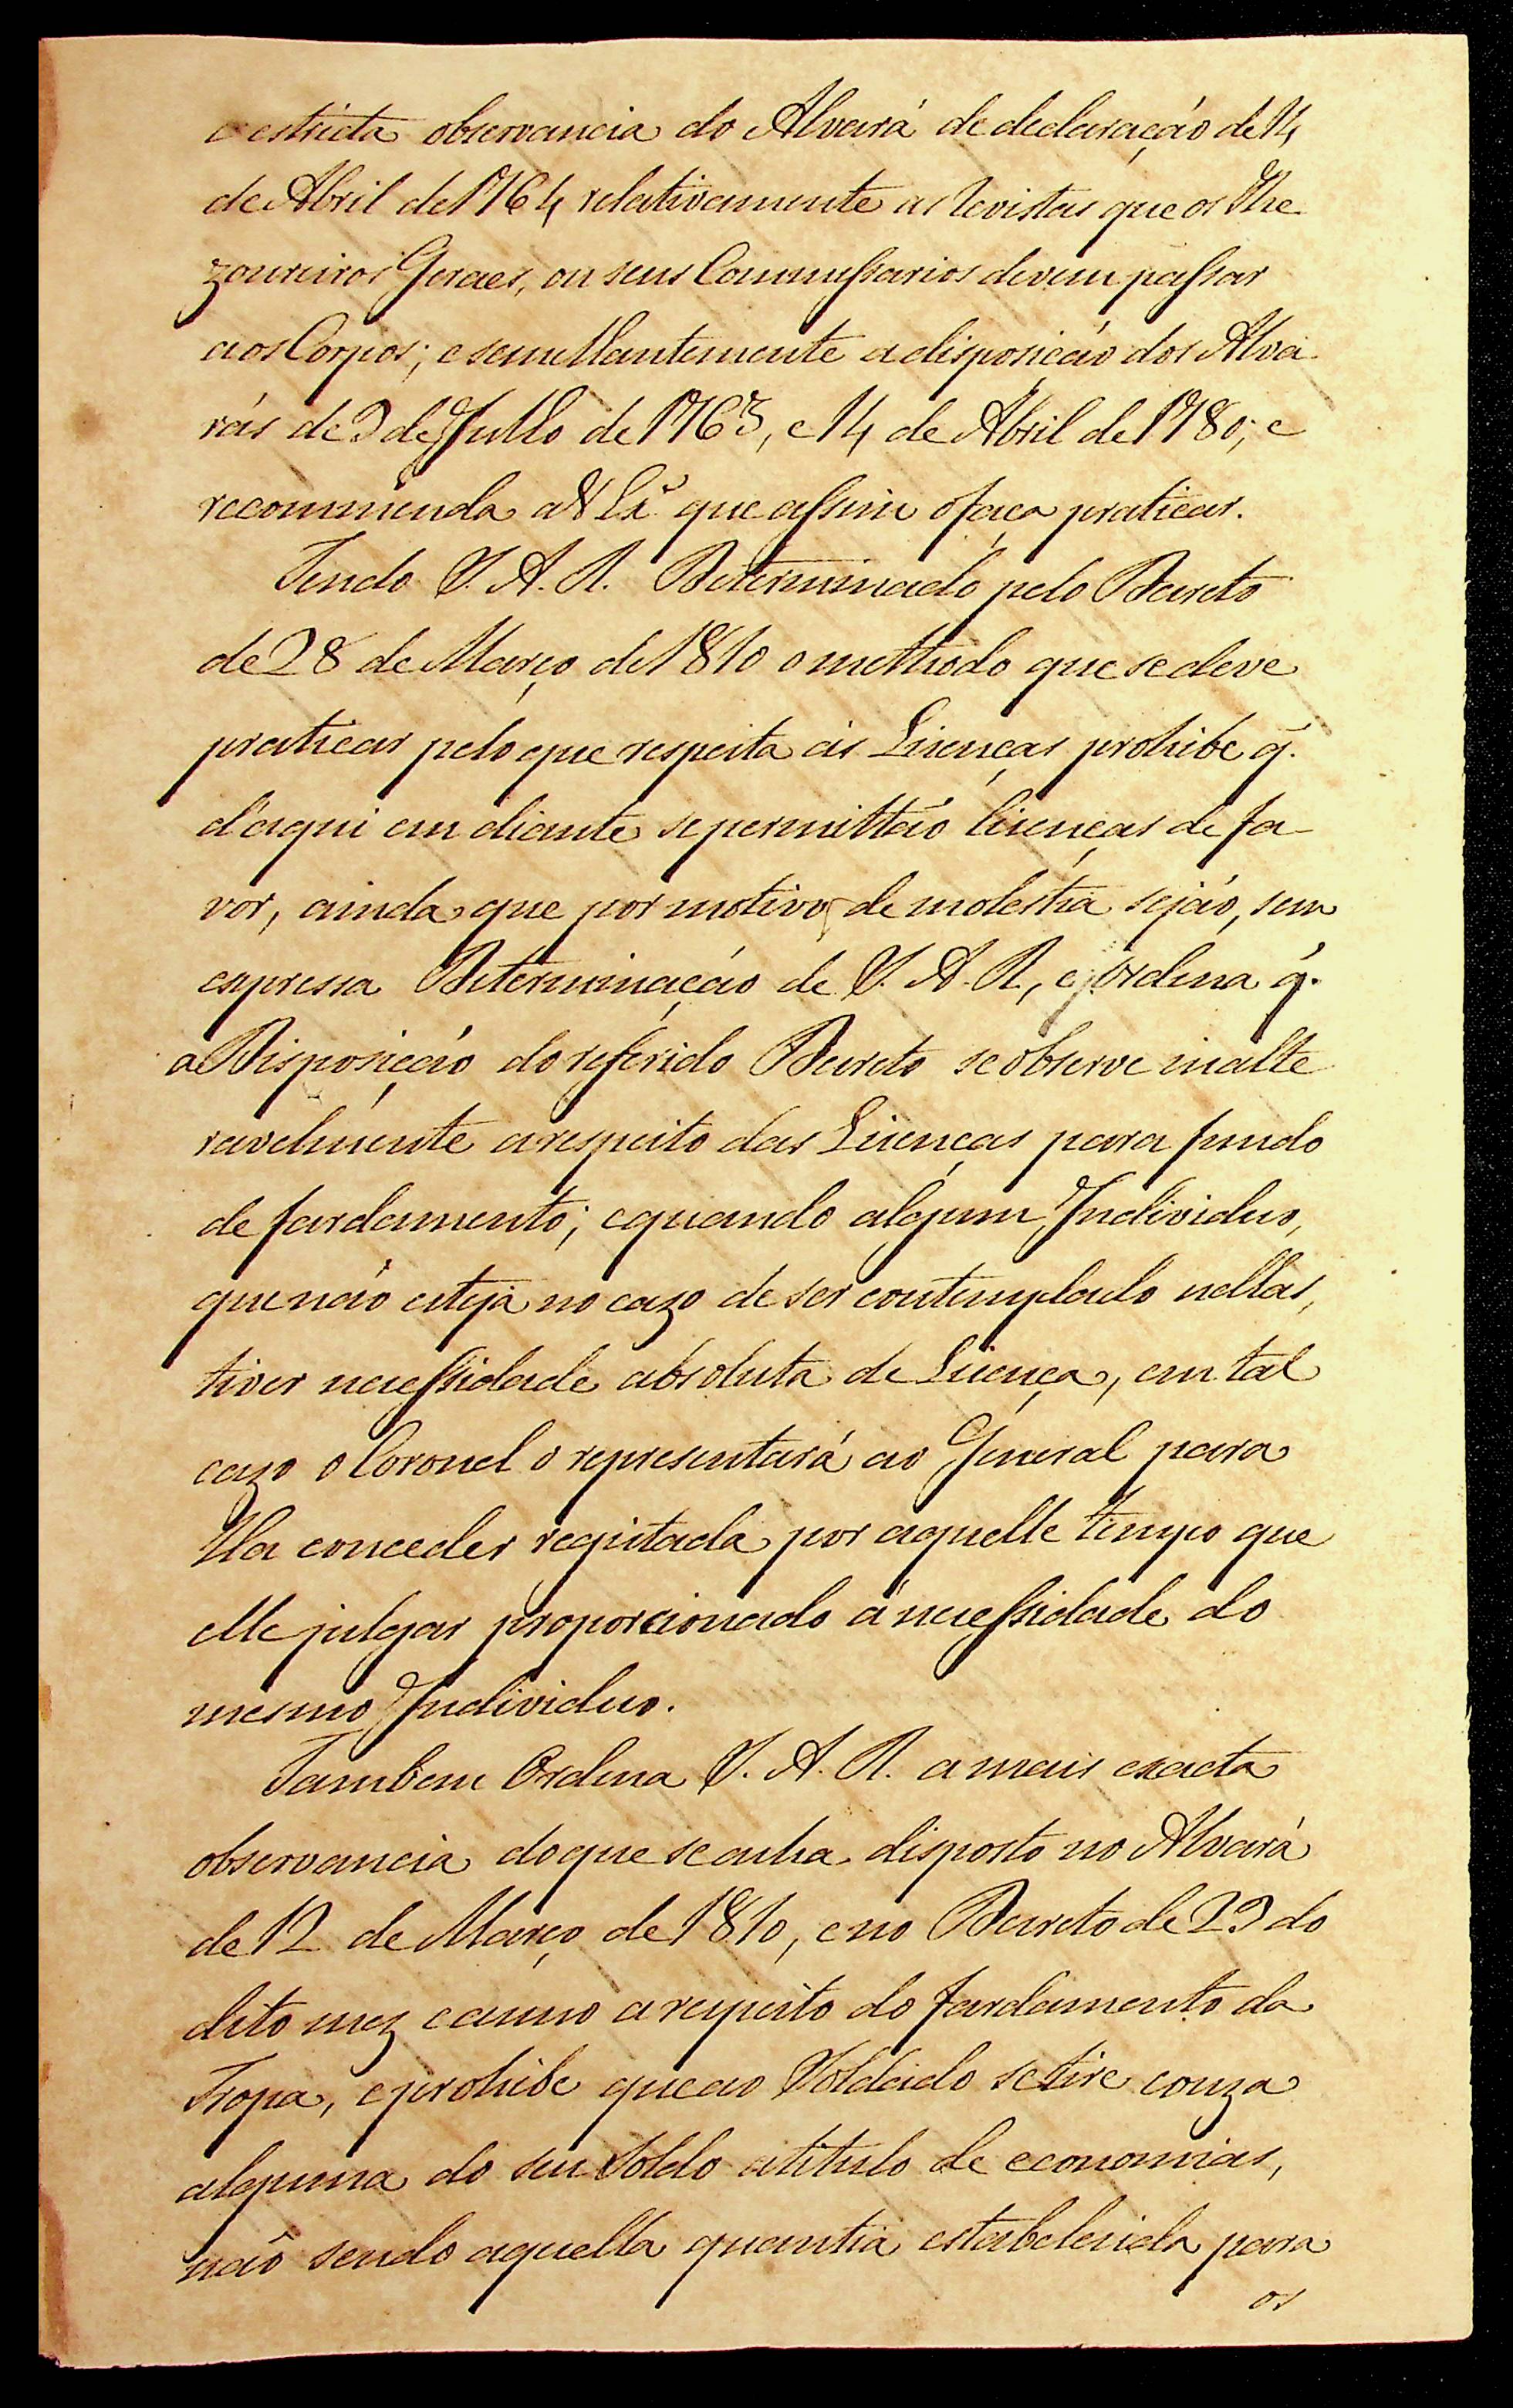 a estricta observancia do Alvará de declaração de 14
de Abril de 1764 relativamente as revistas que os The
zoureiros Geraes, ou seus Commissarios devem passar
aos Corpos; e semelhantemente a disposição dos Alva
rás de 9 de Julho de 1763, e 14 de Abril de 1780; e
recommenda a V Exª que assim o faça praticar.
Tendo S. A. R. Determinado pelo Decreto
de 28 de Março de 1810 o methodo que se deve
praticar pelo que respeita ás Licenças prohibe q̃.
d'aqui em diante se permittão licenças de fa-
vor, ainda que por motivo de molestia sejão, sem
expressa Determinação de S. A. R., e ordena q̃.
a Disposição do referido Decreto se observe inalte
ravelmente a respeito das Licenças para fundo
de fardamento; e quando algum Individuo,
que não esteja no cazo de ser contemplado nellas,
tiver necessidade absoluta de Licença, em tal
cazo o Coronel o representará ao General para
lha conceder registada por aquelle tempo que
elle julgar proporcionado á necessidade do
mesmo Individuo.
Tambem Ordena S. A. R. a mais exacta
observancia do que se acha disposto no Alvará
de 12 de Março de 1810, e no Decreto de 29 do
dito mez e anno a respeito do fardamento da
Tropa, e prohibe que ao Soldado se tire couza
alguma do seu Soldo a titulo de economias,
não sendo aquella quantia estabelecida para
os